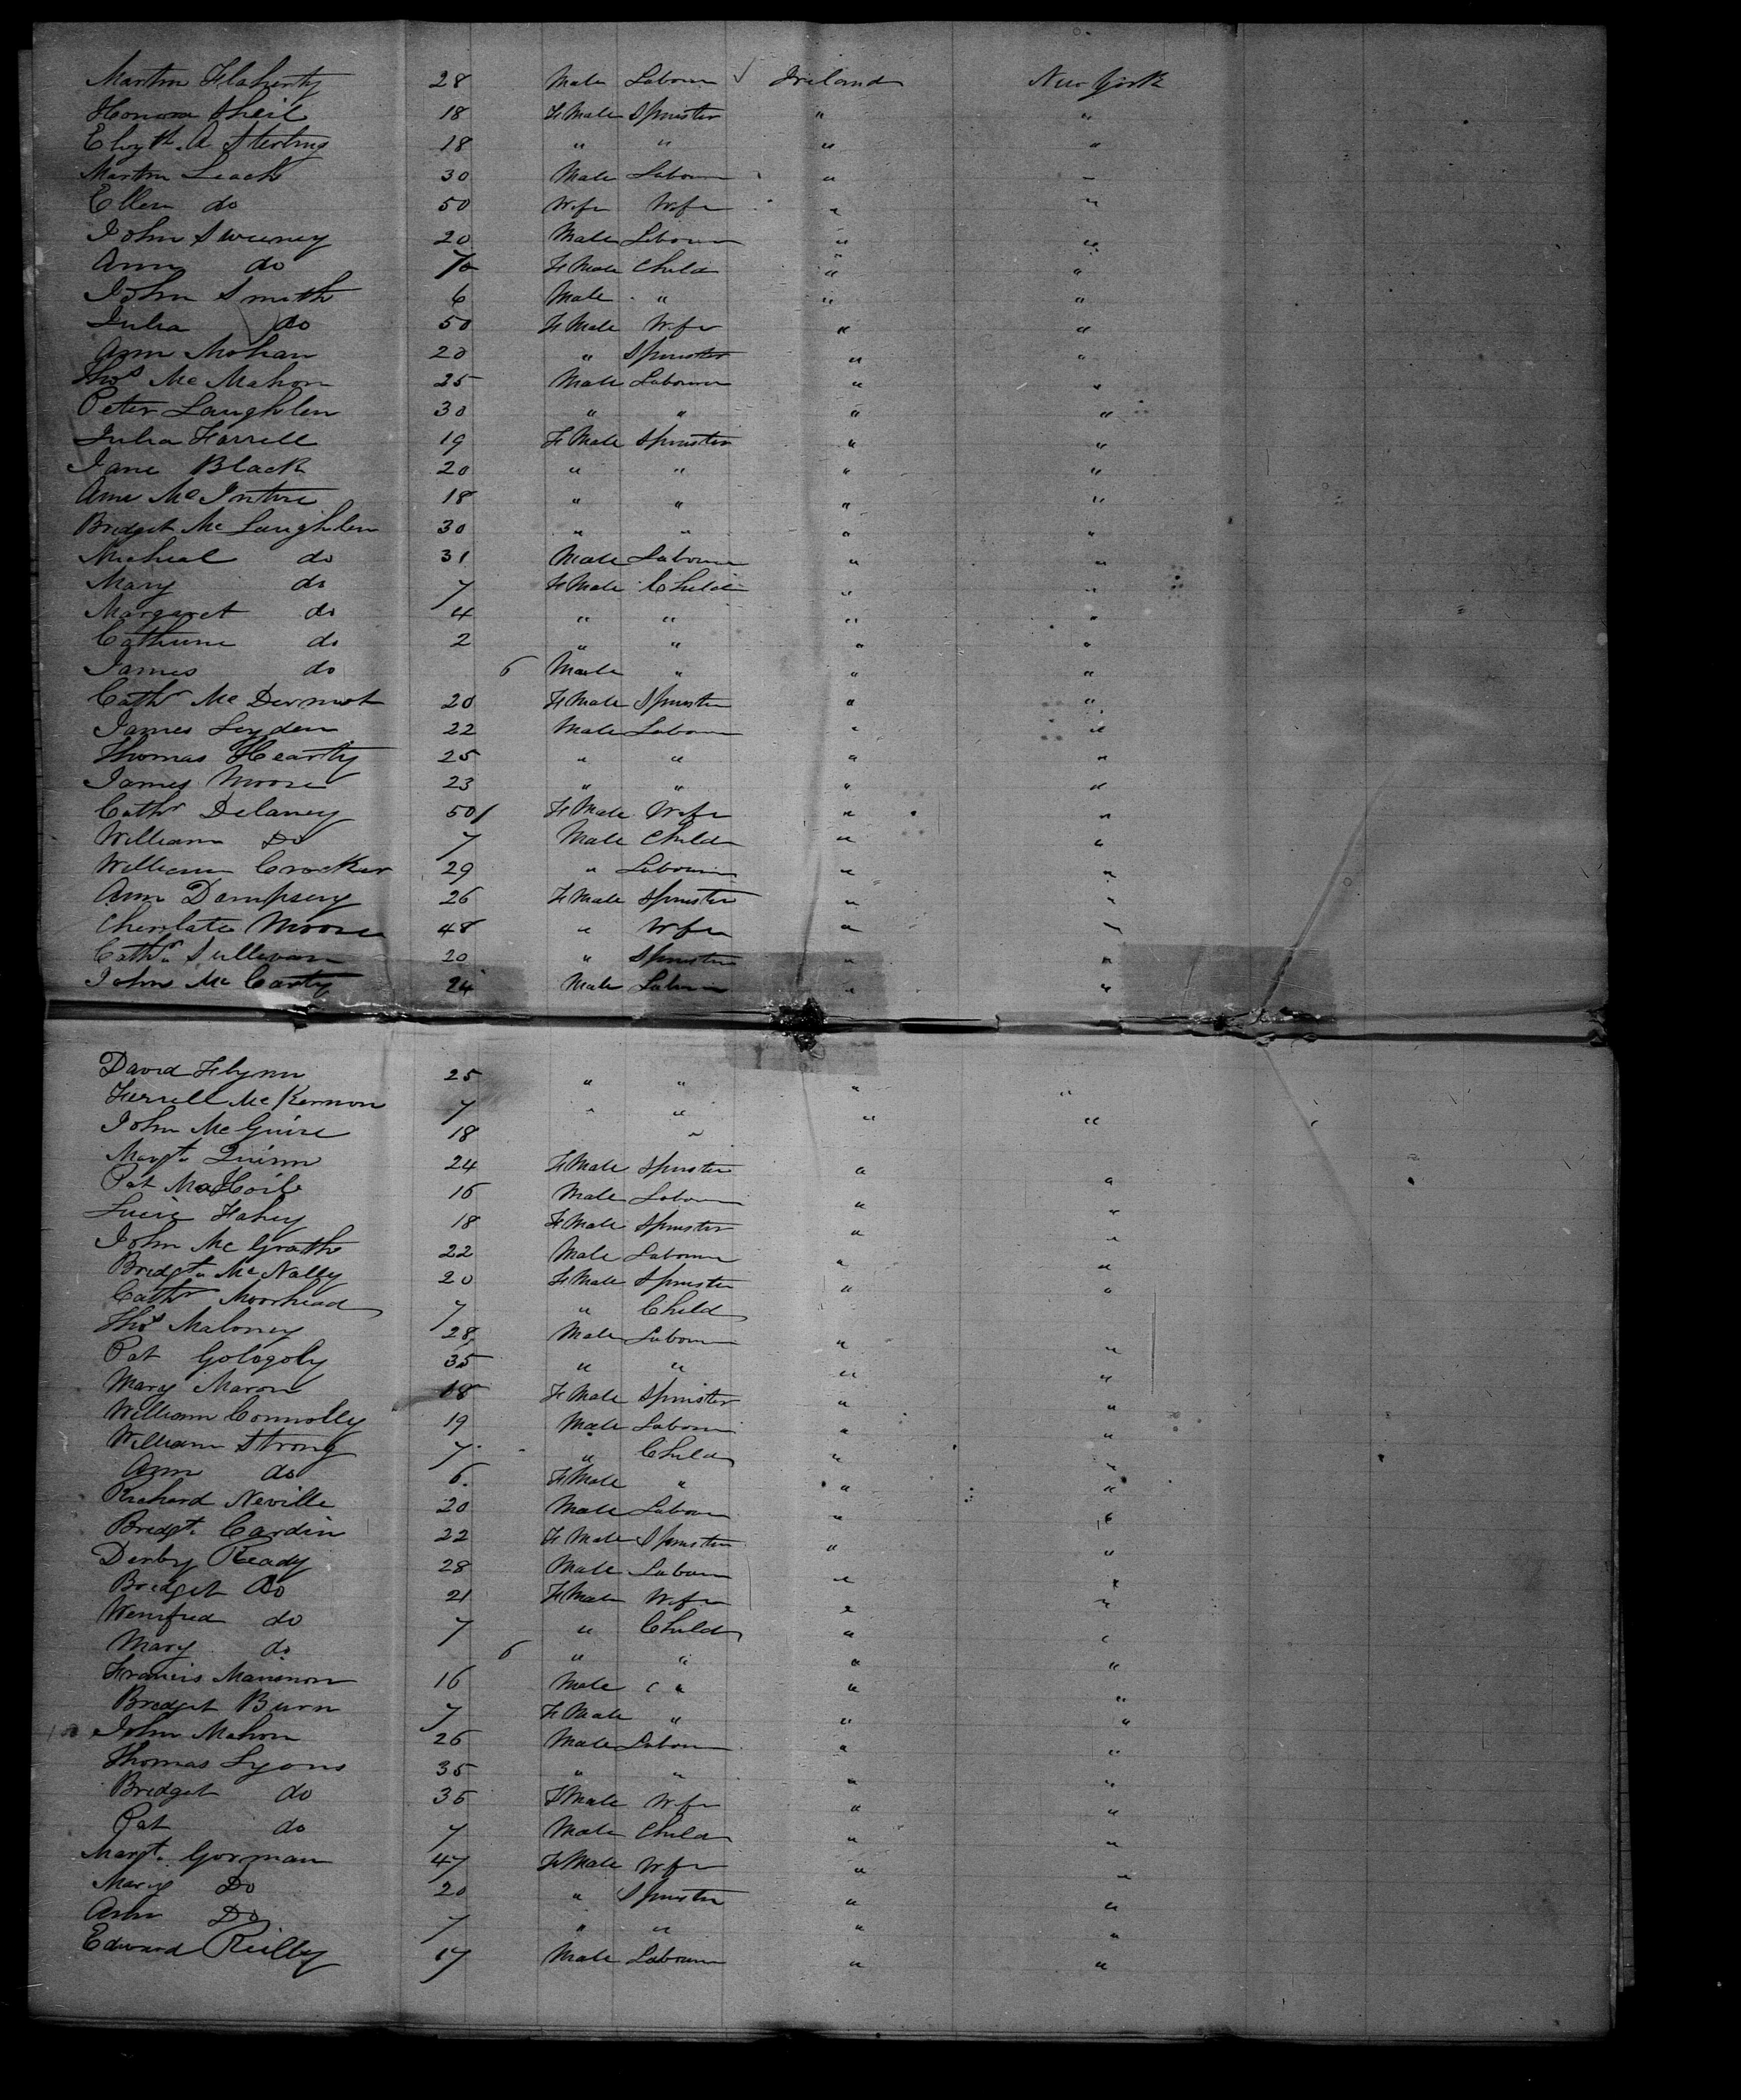 Martin Flaherty 28 Male Labourer ✓ Ireland New York
Honora Sheil 18 FMale Spinster " "
Elizth. A Sterling 18 " " " "
Martin Leach 30 Male Labourer " "
Ellen do 50 Wife Wife " "
John Sweeney 20 Male Labourer " "
Ann do FMale Child " "
John Smith 6 Male " " "
Julia do 50 FMale Wife " "
Ann Mohan 20 " Spinster " "
Thos McMahon 25 Male Labourer " "
Peter Laughlen 30 " " " "
Julia Farrell 19 FMale Spinster " "
Jane Black 20 " " " "
Ann McIntire 18 " " " "
Bridget McLaughlen 30 " " " "
Micheal do 31 Male Labourer " "
Mary do 7 FMale Child " "
Margaret do 4 " " " "
Catherine do 2 " " " "
James do 6 Male " " "
Cathr McDermot 20 FMale Spinster " "
James Leyden 22 Male Labourer " "
Thomas Hearty 25 " " " "
James Moore 23 " " " "
Cathr Delaney 50 FMale Wife " "
William Do 7 Male Child " "
William Crocker 29 " Labourer " "
Ann Dempsey 26 FMale Spinster " "
Moore 48 " Wife " "
Cathr. Sullivan 20 " Spinster " "
John McCarty 24 Male Labourer " "
David Flynn 25 " " " "
Ferrell McKernon 7 " " " "
John McGuire 18 "
Margt. Quinn 24 FMale Spinster " "
Pat 16 Male Labourer " "
Fahey 18 FMale Spinster " "
John McGrath 22 Male Labourer " "
Bridgt. McNally 20 FMale Spinster " "
Cathr Moorhead 7 " Child
Thos Maloney 28 Male Labourer " "
Pat Gologoly 35 " " " "
Mary Maron 18 FMale Spinster " "
William Connolly 19 Male Labourer " "
William Strong 7 " Child " "
Ann do 6 FMale " " "
Richard Neville 20 Male Labourer " "
Bridgt. Cardin 22 FMale Spinster " "
Denby Ready 28 Male Labourer " "
Bridget do 21 FMale Wife " "
Wenifred do 7 " Child " "
Mary do 6 " " " "
Francis Mannion 16 Male " " "
Bridget Burn 7 FMale " " "
John Mahon 26 Male Labourer " "
Thomas Lyons 35 " " " "
Bridget do 35 FMale Wife " "
Pat do 7 Male Child " "
Margt. Gorman 47 FMale Wife " "
Mary Do 20 " Spinster " "
Ann Do 7 " " " "
Edward Reilly 17 Male Labourer " "